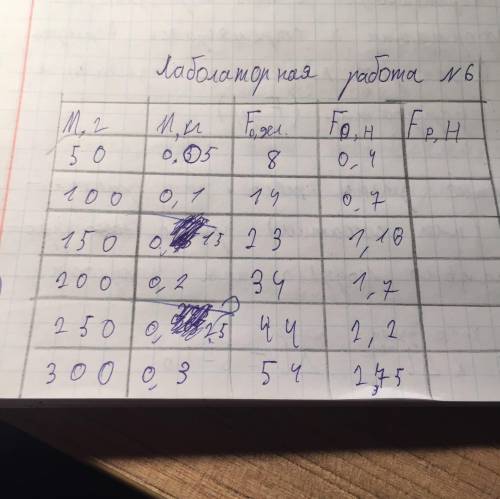 Лаболаторная работа №6
m, г m, кг F₀, эл. F₀, н Fр, н
50 0,05 8 0,4
100 0,1 14 0,7
150 0,15 23 1,16
200 0,2 34 1,7
250 0,25 44 2,2
300 0,3 54 2,75